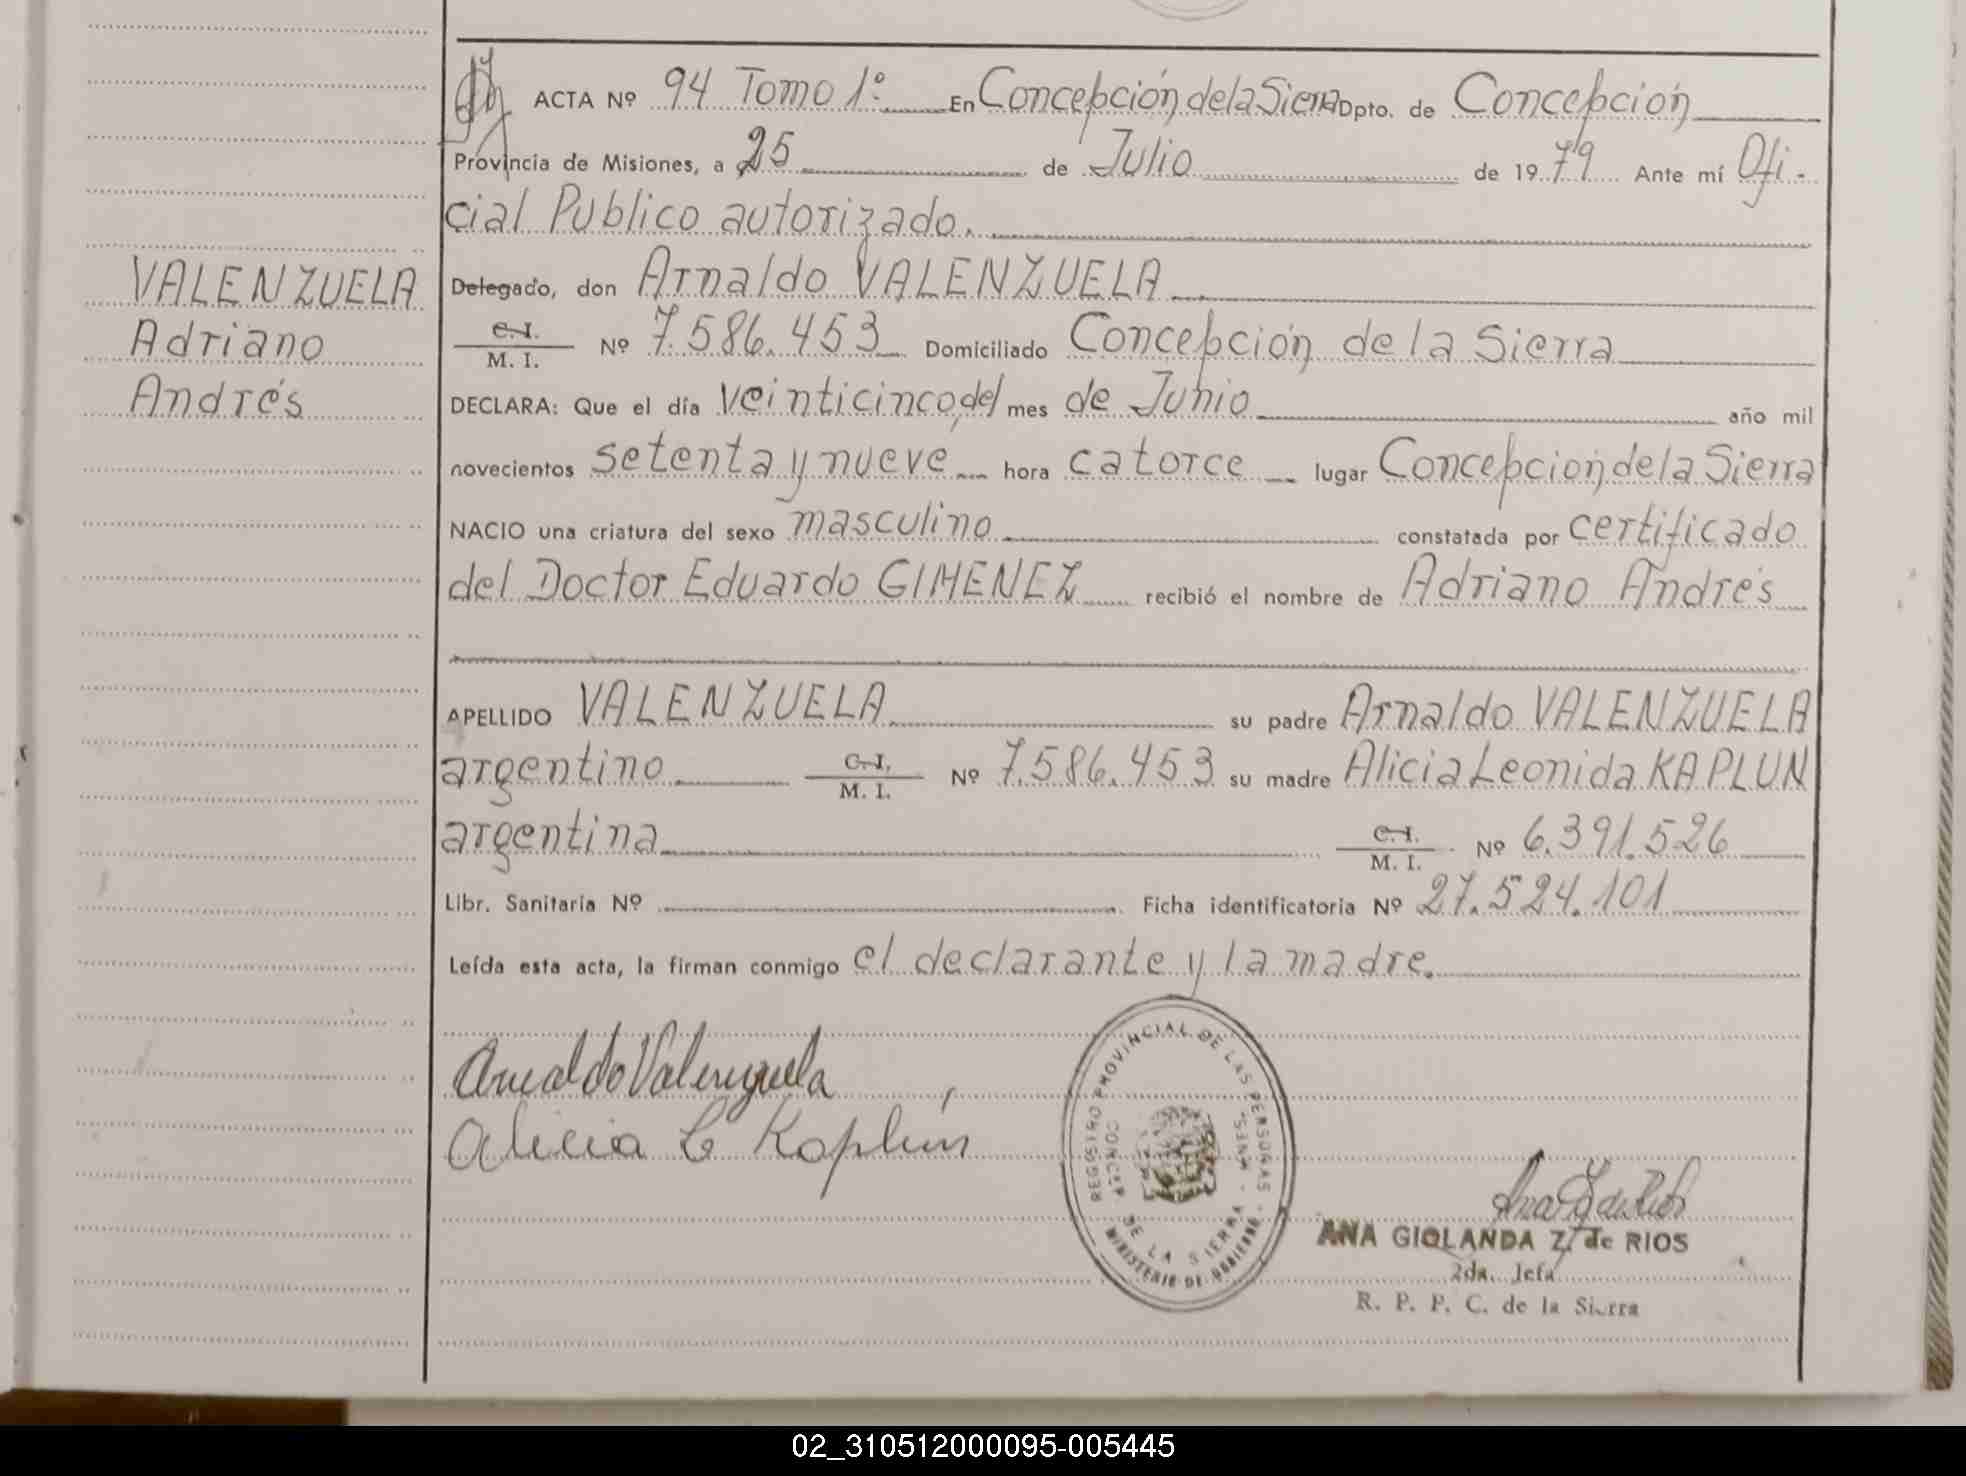 ACTA Nº 94 Tomo 1º En Concepción de la Sierra Dpto. de Concepción
Provincia de Misiones, a 25 de Julio de 1979 Ante mí Ofi-
cial Publico autorizado.
VALENZUELA
Adriano
Andrés
Delegado, don Arnaldo VALENZUELA
C.I.
M. I. Nº 7.586.453 Domiciliado Concepción de la Sierra
DECLARA: Que el día veinticinco, del mes de Junio año mil
novecientos setenta y nueve hora catorce lugar Concepción de la Sierra
NACIO una criatura del sexo masculino constatada por certificado
del Doctor Eduardo GIMENEZ recibió el nombre de Adriano Andrés
APELLIDO VALENZUELA su padre Arnaldo VALENZUELA
argentino C.I.
M. I. Nº 7.586.453 su madre Alicia Leonida KAPLUN
argentina C.I.
M. I. Nº 6.391.526
Libr. Sanitaria Nº Ficha identificatoria Nº 27.524.101
Leída esta acta, la firman conmigo el declarante y la madre.
Arnaldo Valenzuela
Alicia L Kaplun
REGISTRO PROVINCIAL DE LAS PERSONAS
CONCEP. DE LA SIERRA - MSNES.
MINISTERIO DE GOBIERNO
ANA GIOLANDA Z. de RIOS
2da. Jefa
R. P. P. C. de la Sierra
02_310512000095-005445